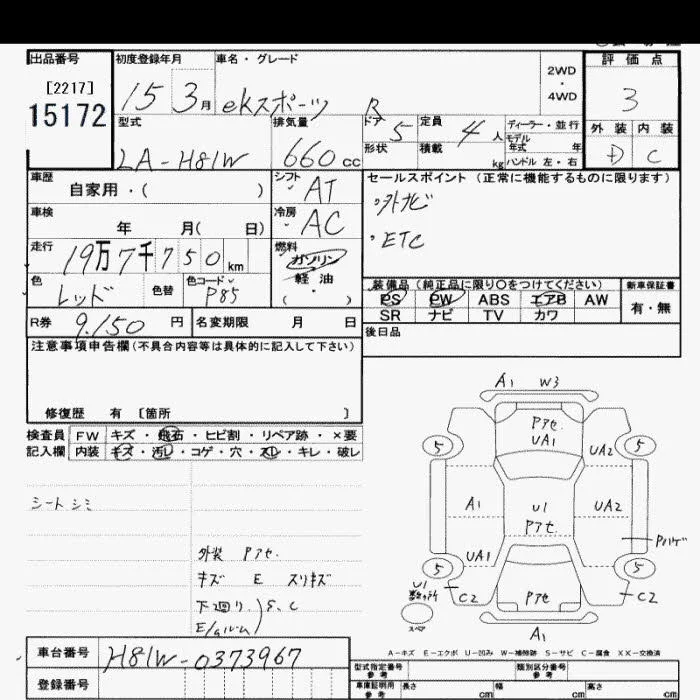 出品番号 初度登録年月 車名・グレード 評価点
[2217] 15 3月 ekスポーツ R 2WD・4WD 3
15172
型式 排気量 ドア 5 定員 4人 ディーラー・並行 外装 内装
LA-H81W 660cc 形状 積載 kg モデル年式 年 D C
ハンドル 左・右
車歴 シフト AT セールスポイント (正常に機能するものに限ります)
自家用・( )
・外ナビ
車検 冷房 AC
年 月( 日)
・ETC
走行 19万7千750km 燃料 ガソリン
軽油
・( )
色 レッド 色替 色コード P85
装備品(純正品に限り○をつけてください) 新車保証書
PS PW ABS エアB AW 有・無
SR ナビ TV カワ
R券 9.150円 名変期限 月 日
後日品
注意事項申告欄(不具合内容等は具体的に記入して下さい)
修復歴 有 [箇所 ]
検査員 FW キズ・飛石・ヒビ割・リペア跡・×要
記入欄 内装 キズ・汚レ・コゲ・穴・スレ・キレ・破レ
シートシミ
外装 Pアセ.
キズ E スリキズ
下廻り.) S, C
A1 W3
Pアセ.
UA1
5 5
UA2
A1 U1 UA2
Pアセ
Pハゲ
UA1
5 5
U1
C2 Pアセ C2
スペア
A1
A-キズ E-エクボ U-凹み W-補修跡 S-サビ C-腐食 XX-交換済
車台番号 H81W-0373967
型式指定番号 参考 類別区分番号 参考
登録番号
車庫証明用 参考 長さ cm 幅 cm 高さ cm